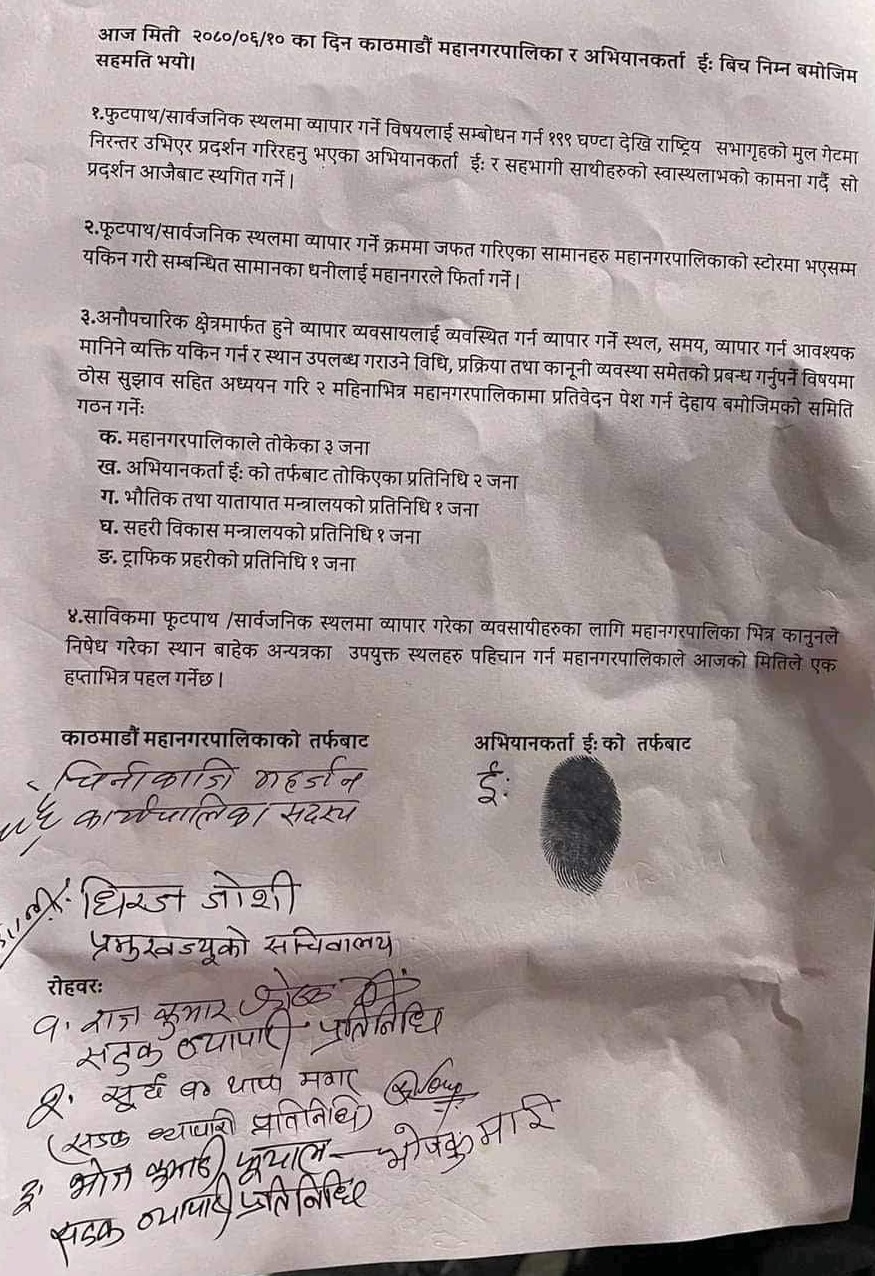 आज मिती २०८०/०६/१० का दिन काठमाडौं महानगरपालिका र अभियानकर्ता ईः बिच निम्न बमोजिम
सहमति भयो।
१.फुटपाथ/सार्वजनिक स्थलमा व्यापार गर्ने विषयलाई सम्बोधन गर्न १९९ घण्टा देखि राष्ट्रिय सभागृहको मुल गेटमा
निरन्तर उभिएर प्रदर्शन गरिरहनु भएका अभियानकर्ता ईः र सहभागी साथीहरुको स्वास्थलाभको कामना गर्दै सो
प्रदर्शन आजैबाट स्थगित गर्ने।
२.फूटपाथ/सार्वजनिक स्थलमा व्यापार गर्ने क्रममा जफत गरिएका सामानहरु महानगरपालिकाको स्टोरमा भएसम्म
यकिन गरी सम्बन्धित सामानका धनीलाई महानगरले फिर्ता गर्ने।
३.अनौपचारिक क्षेत्रमार्फत हुने व्यापार व्यवसायलाई व्यवस्थित गर्न व्यापार गर्ने स्थल, समय, व्यापार गर्न आवश्यक
मानिने व्यक्ति यकिन गर्न र स्थान उपलब्ध गराउने विधि, प्रक्रिया तथा कानूनी व्यवस्था समेतको प्रबन्ध गर्नुपर्ने विषयमा
ठोस सुझाव सहित अध्ययन गरि २ महिनाभित्र महानगरपालिकामा प्रतिवेदन पेश गर्न देहाय बमोजिमको समिति
गठन गर्नेः
क. महानगरपालिकाले तोकेका ३ जना
ख. अभियानकर्ता ईः को तर्फबाट तोकिएका प्रतिनिधि २ जना
ग. भौतिक तथा यातायात मन्त्रालयको प्रतिनिधि १ जना
घ. सहरी विकास मन्त्रालयको प्रतिनिधि १ जना
ङ. ट्राफिक प्रहरीको प्रतिनिधि १ जना
४.साविकमा फूटपाथ /सार्वजनिक स्थलमा व्यापार गरेका व्यवसायीहरुका लागि महानगरपालिका भित्र कानुनले
निषेध गरेका स्थान बाहेक अन्यत्रका उपयुक्त स्थलहरु पहिचान गर्न महानगरपालिकाले आजको मितिले एक
हप्ताभित्र पहल गर्नेछ।
काठमाडौं महानगरपालिकाको तर्फबाट
चिनीकाजि महर्जन
कार्यपालिका सदस्य
धिरज जोशी
प्रमुखज्यूको सचिवालय
अभियानकर्ता ईः को तर्फबाट
ईः
रोहवरः
१. राज कुमार
सडक व्यापारी प्रतिनिधि
२. सूर्य ब थापा मगर
(सडक व्यापारी प्रतिनिधि)
३. भोज कुमारी फूयाल - भोजकुमारी
सडक व्यापारी प्रतिनिधि